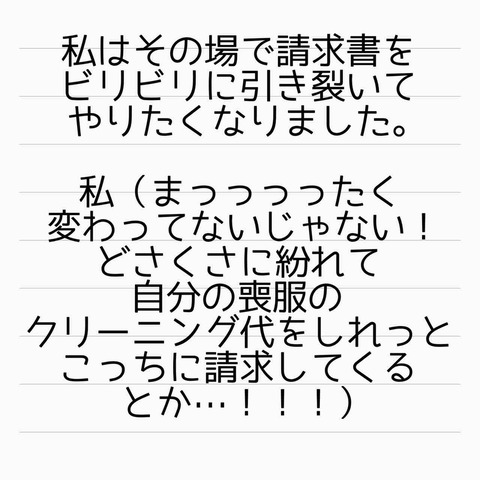 私はその場で請求書を
ビリビリに引き裂いて
やりたくなりました。
私（まっっっったく
変わってないじゃない！
どさくさに紛れて
自分の喪服の
クリーニング代をしれっと
こっちに請求してくる
とか…！！！）